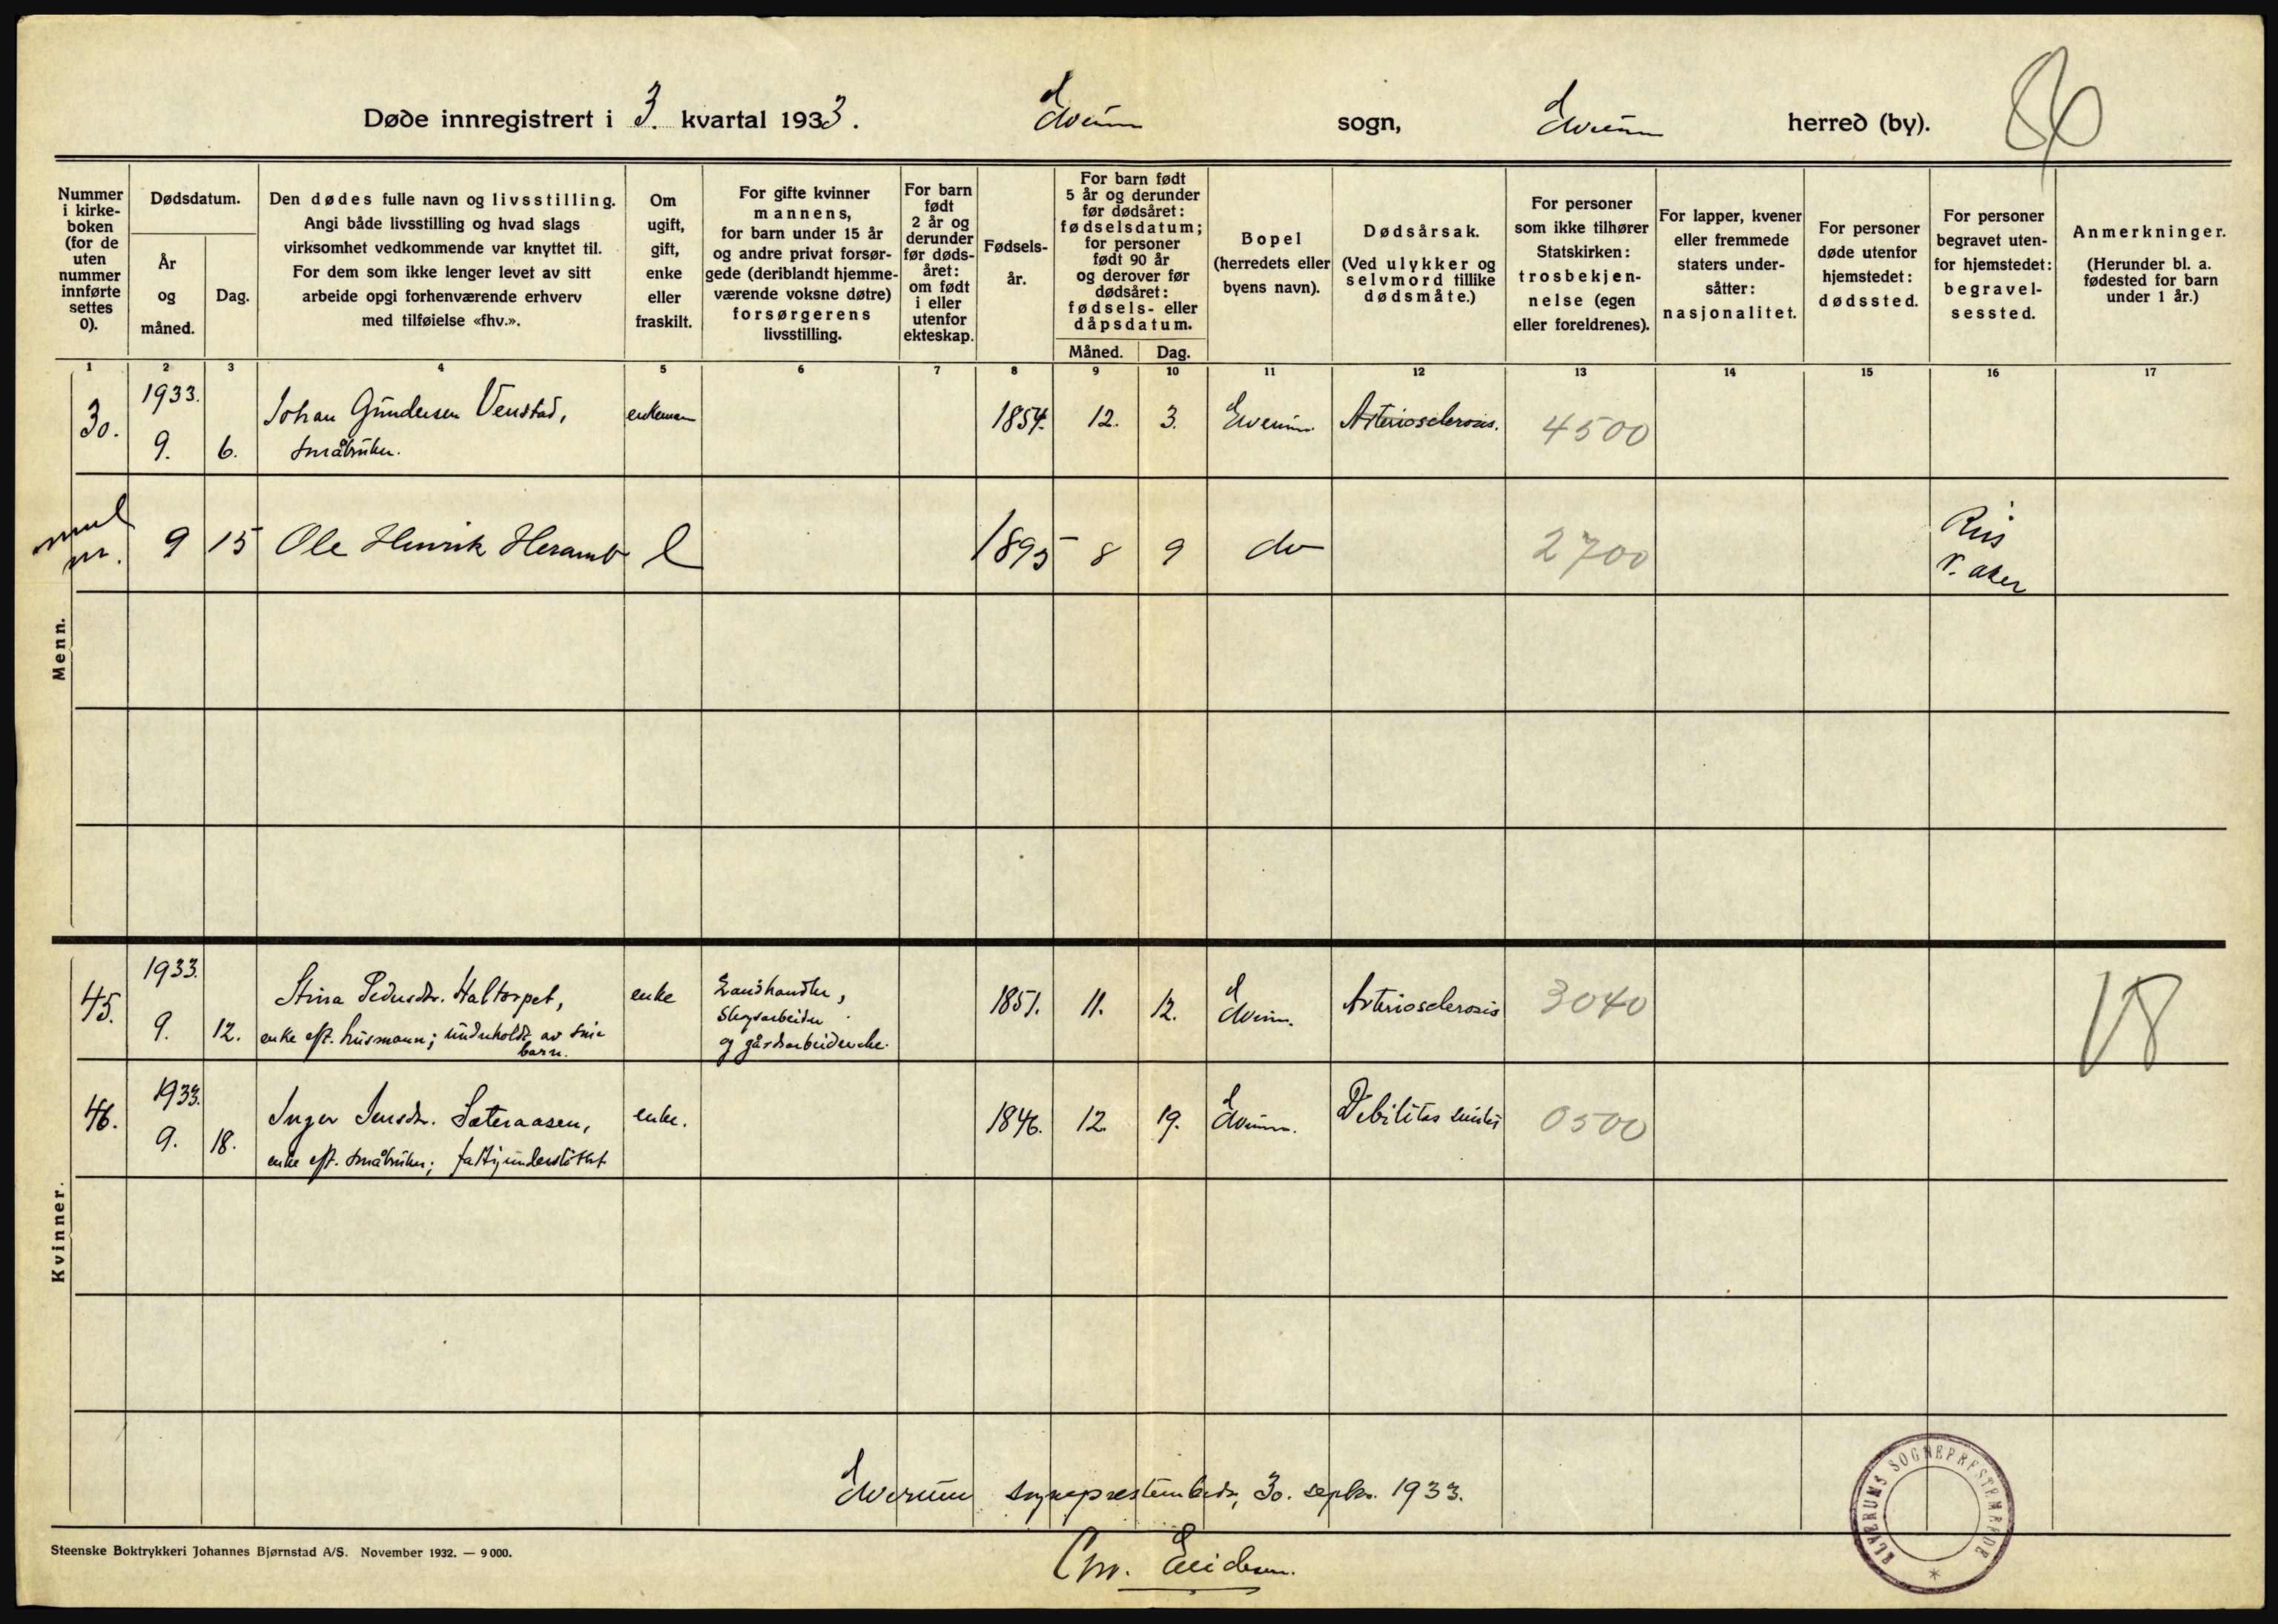 86
Døde innregistrert i 3. kvartal 1933. Elverum sogn, Elverum herred (by).
Nummer i kirke- boken (for de uten nummer innførte settes 0).
Dødsdatum.
År og måned.
Dag.
Den dødes fulle navn og livsstilling.
Angi både livsstilling og hvad slags
virksomhet vedkommende var knyttet til.
For dem som ikke lenger levet av sitt
arbeide opgi forhenværende erhverv
med tilføielse «fhv.».
Om ugift, gift, enke eller fraskilt.
For gifte kvinner
mannens,
for barn under 15 år
og andre privat forsør-
gede (deriblandt hjemme-
værende voksne døtre)
forsørgerens
livsstilling.
For barn født 2 år og derunder før døds- året: om født i eller utenfor ekteskap.
Fødsels- år.
For barn født
5 år og derunder
før dødsåret:
fødselsdatum;
for personer
født 90 år
og derover før
dødsåret:
fødsels- eller
dåpsdatum.
Måned. Dag.
Bopel
(herredets eller
byens navn).
Dødsårsak.
(Ved ulykker og
selvmord tillike
dødsmåte.)
For personer
som ikke tilhører
Statskirken:
trosbekjen-
nelse (egen
eller foreldrenes).
For lapper, kvener
eller fremmede
staters under-
såtter:
nasjonalitet.
For personer
døde utenfor
hjemstedet:
dødssted.
For personer
begravet uten-
for hjemstedet:
begravel-
sessted.
Anmerkninger.
(Herunder bl. a.
fødested for barn
under 1 år.)
1 2 3 4 5 6 7 8 9 10 11 12 13 14 15 16 17
Menn.
30. 1933. 9. 6. Johan Gundersen Venstad, enkemann 1854. 12. 3. Elverum. Arteriosclerosis. 4500
småbruker.
nr. 9 15 Ole Henrik Heramb 1895 8 9 do 2700 Riis
v. aker
Kvinner.
45. 1933. 9. 12. Stina Pedersdtr. Haltorpet, enke Landhandler, 1851. 11. 12. Elverum. Arteriosclerosis 3040 18
enke eft. husmann; underholdt av sine barn.
skogsarbeider
og gårdsarbeiderske.
46. 1933. 9. 18. Inger Jensdtr. Sæteraasen, enke. 1846. 12. 19. Elverum. Debilitas senilis 0500
enke eft. småbruker; fattigunderstøttet
Elverum sogneprestembede, 30. septbr. 1933.
Chr.
ELVERUMS SOGNEPRESTEMBEDE
Steenske Boktrykkeri Johannes Bjørnstad A/S. November 1932. — 9000.